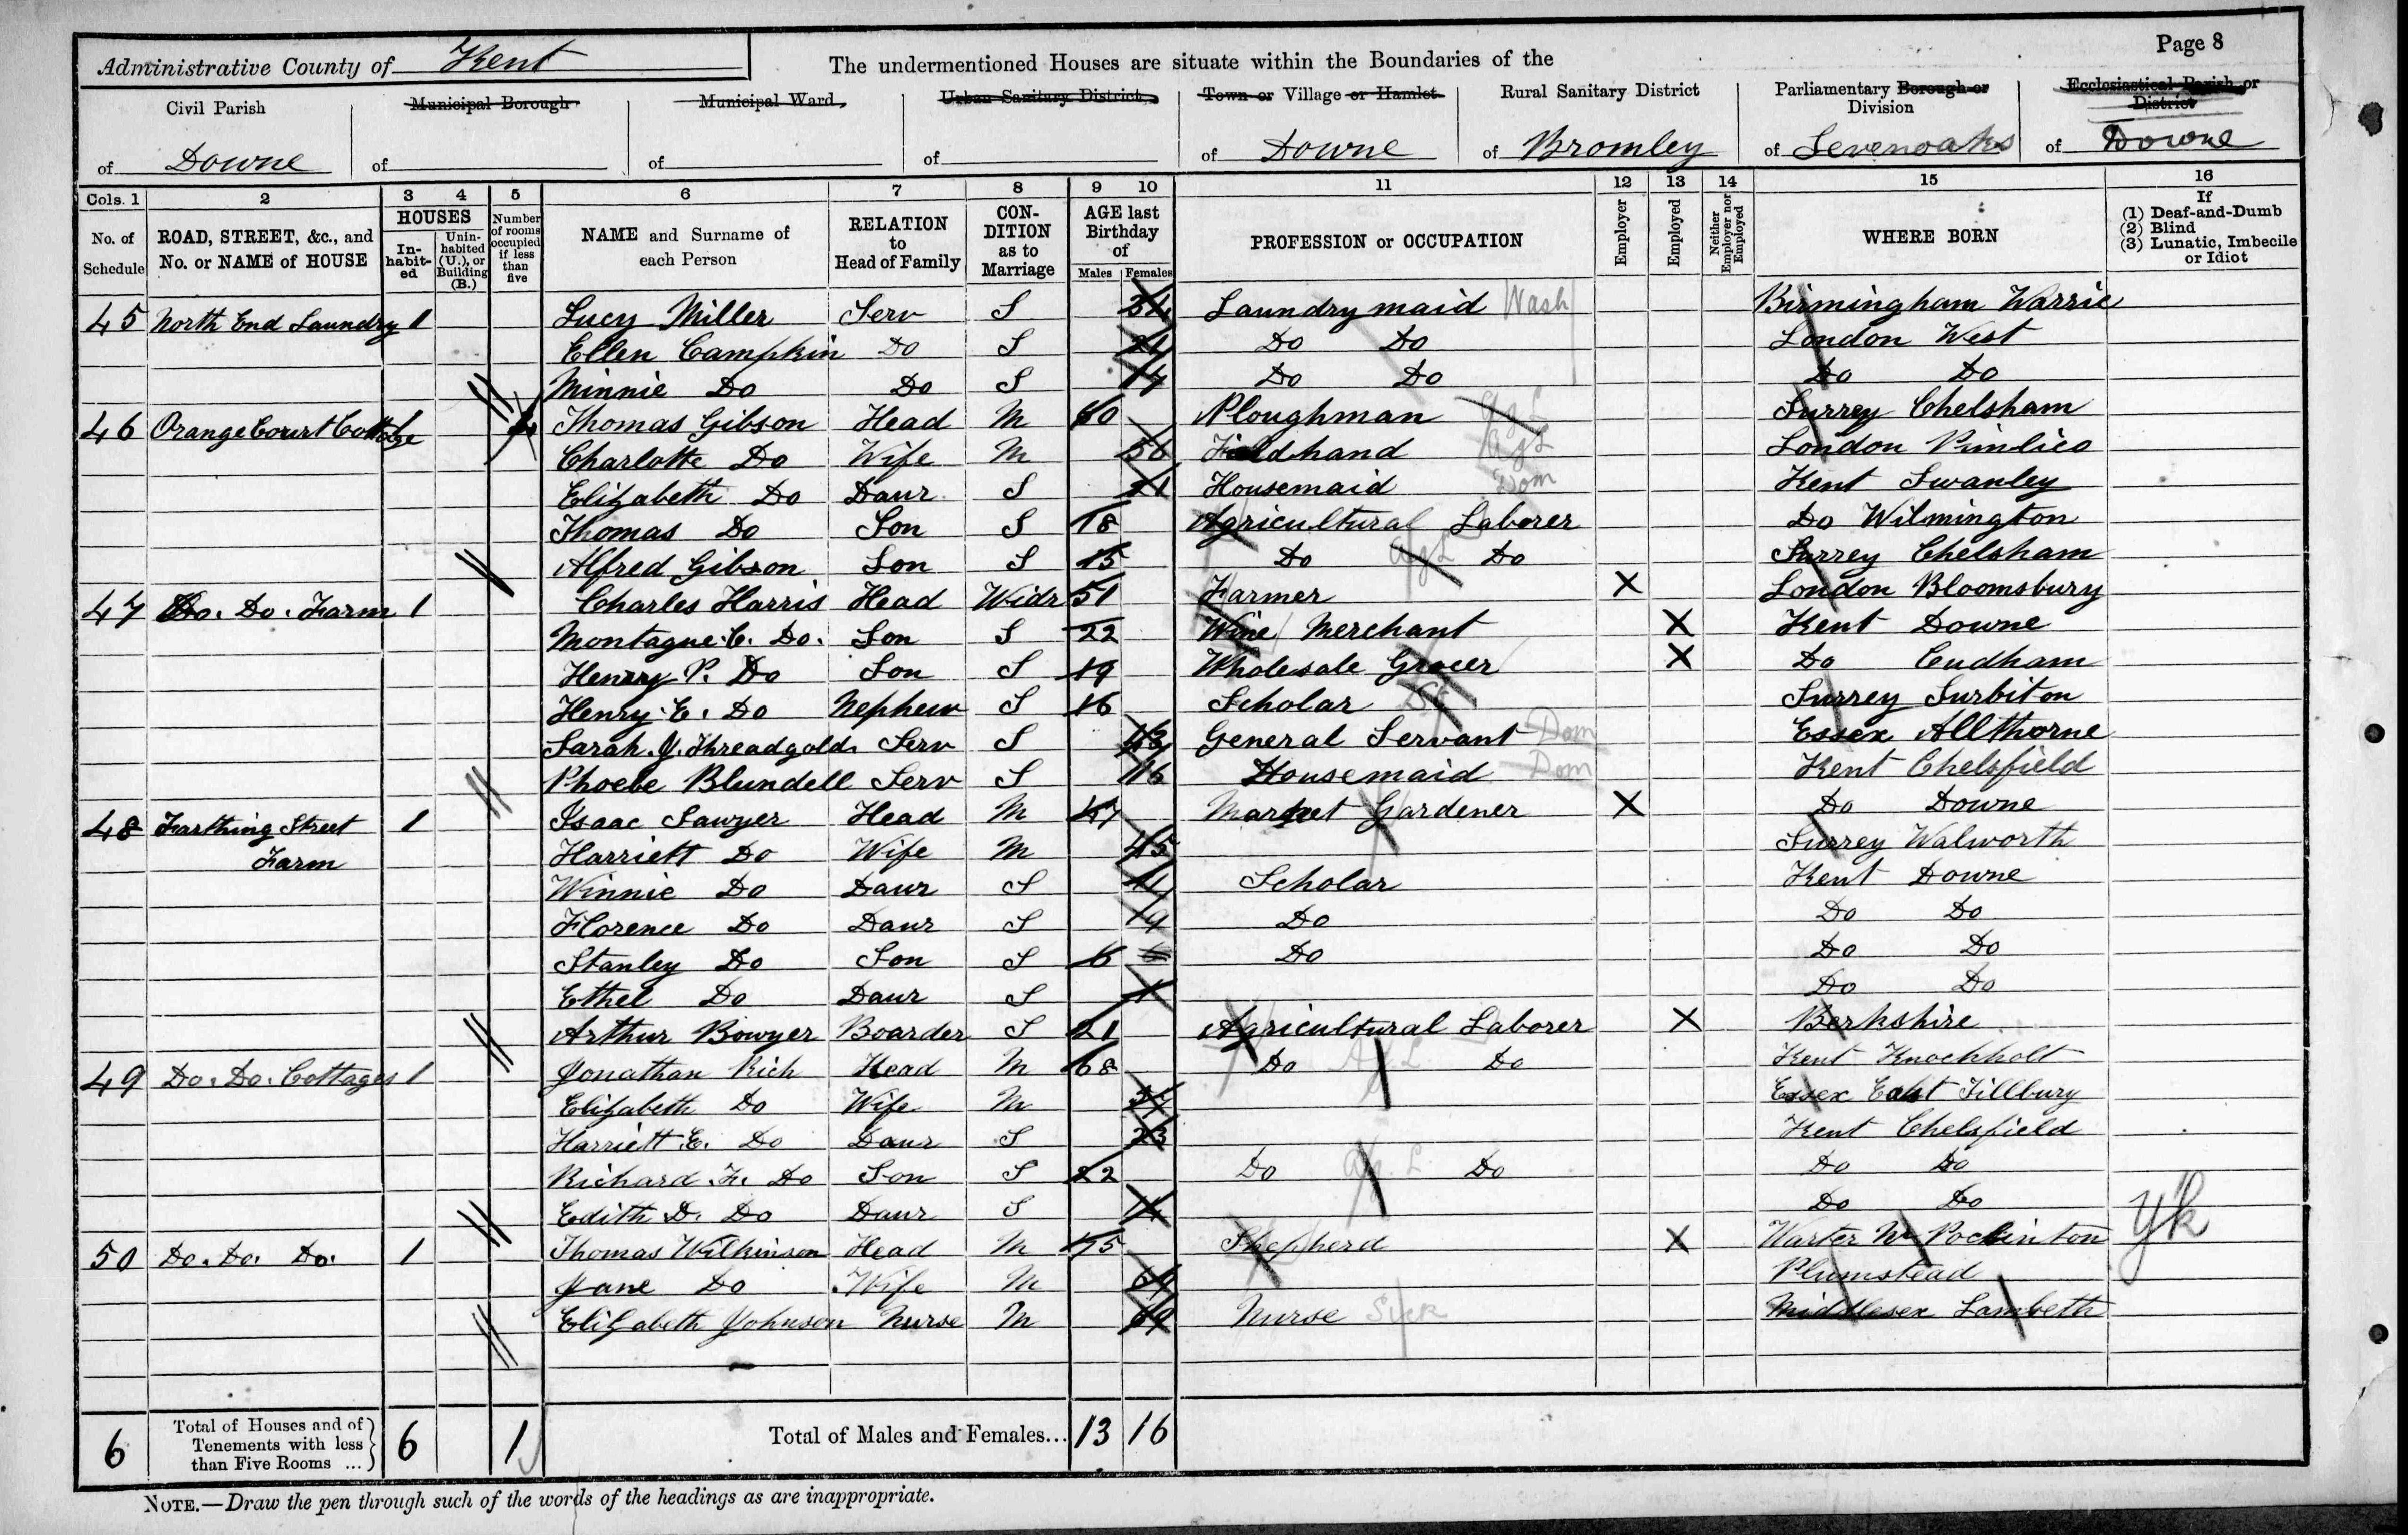 Page 8
Administrative County of Kent
The undermentioned Houses are situate within the Boundaries of the
Civil Parish of Downe
Municipal Borough of
Municipal Ward of
Urban Sanitary District of
Town or Village or Hamlet of Downe
Rural Sanitary District of Bromley
Parliamentary Borough or Division of Sevenoaks
Ecclesiastical Parish or District of Downe
Cols. 1 2 3 4 5 6 7 8 9 10 11 12 13 14 15 16
No. of Schedule
ROAD, STREET, &c., and No. or NAME of HOUSE
HOUSES
Inhabited
Uninhabited (U.), or Building (B.)
Number of rooms occupied if less than five
NAME and Surname of each Person
RELATION to Head of Family
CONDITION as to Marriage
AGE last Birthday of
Males Females
PROFESSION or OCCUPATION
Employer
Employed
Neither Employer nor Employed
WHERE BORN
If
(1) Deaf-and-Dumb
(2) Blind
(3) Lunatic, Imbecile or Idiot
45 North End Laundry 1 Lucy Miller Serv S Laundry maid Wash Birmingham Warric
Ellen Campkin Do S Do Do London West
Minnie Do Do S Do Do Do Do
46 Orange Court Cottage 1 Thomas Gibson Head M 60 Ploughman Ag L Surrey Chelsham
Charlotte Do Wife M 56 Fieldhand Ag L London Pimlico
Elizabeth Do Daur S 21 Housemaid Dom Kent Swanley
Thomas Do Son S 18 Agricultural Laborer Do Wilmington
Alfred Gibson Son S 15 Do Ag L Do Surrey Chelsham
47 Do. Do. Farm 1 Charles Harris Head Widr 51 Farmer X London Bloomsbury
Montague C. Do. Son S 22 Wine Merchant X Kent Downe
Henry P. Do Son S 19 Wholesale Grocer X Do Cudham
Henry E. Do Nephew S 16 Scholar Surrey Surbiton
Sarah J. Threadgold Serv S 43 General Servant Dom Essex Allthorne
Phoebe Blundell Serv S 16 Housemaid Dom Kent Chelsfield
48 Farthing Street Farm 1 Isaac Sawyer Head M 47 Market Gardener X Do Downe
Harriett Do Wife M 45 Surrey Walworth
Winnie Do Daur S 11 Scholar Kent Downe
Florence Do Daur S 9 Do Do Do
Stanley Do Son S 6 Do Do Do
Ethel Do Daur S 1 Do Do
Arthur Bowyer Boarder S 21 Agricultural Laborer X Berkshire
49 Do. Do. Cottages 1 Jonathan Rich Head M 68 Do Ag L Do Kent Knockholt
Elizabeth Do Wife M Essex East Tillbury
Harriett E. Do Daur S 23 Kent Chelsfield
Richard F. Do Son S 22 Do Ag. L. Do Do Do
Edith D. Do Daur S Do Do
50 Do. Do. Do. 1 Thomas Wilkinson Head M 75 Shepherd X Warter Nr Pocklinton Yk
Jane Do Wife M 64 Plumstead
Elizabeth Johnson Nurse M 69 Nurse Sick Middlesex Lambeth
6 Total of Houses and of Tenements with less than Five Rooms ... 6 1 Total of Males and Females... 13 16
NOTE.—Draw the pen through such of the words of the headings as are inappropriate.